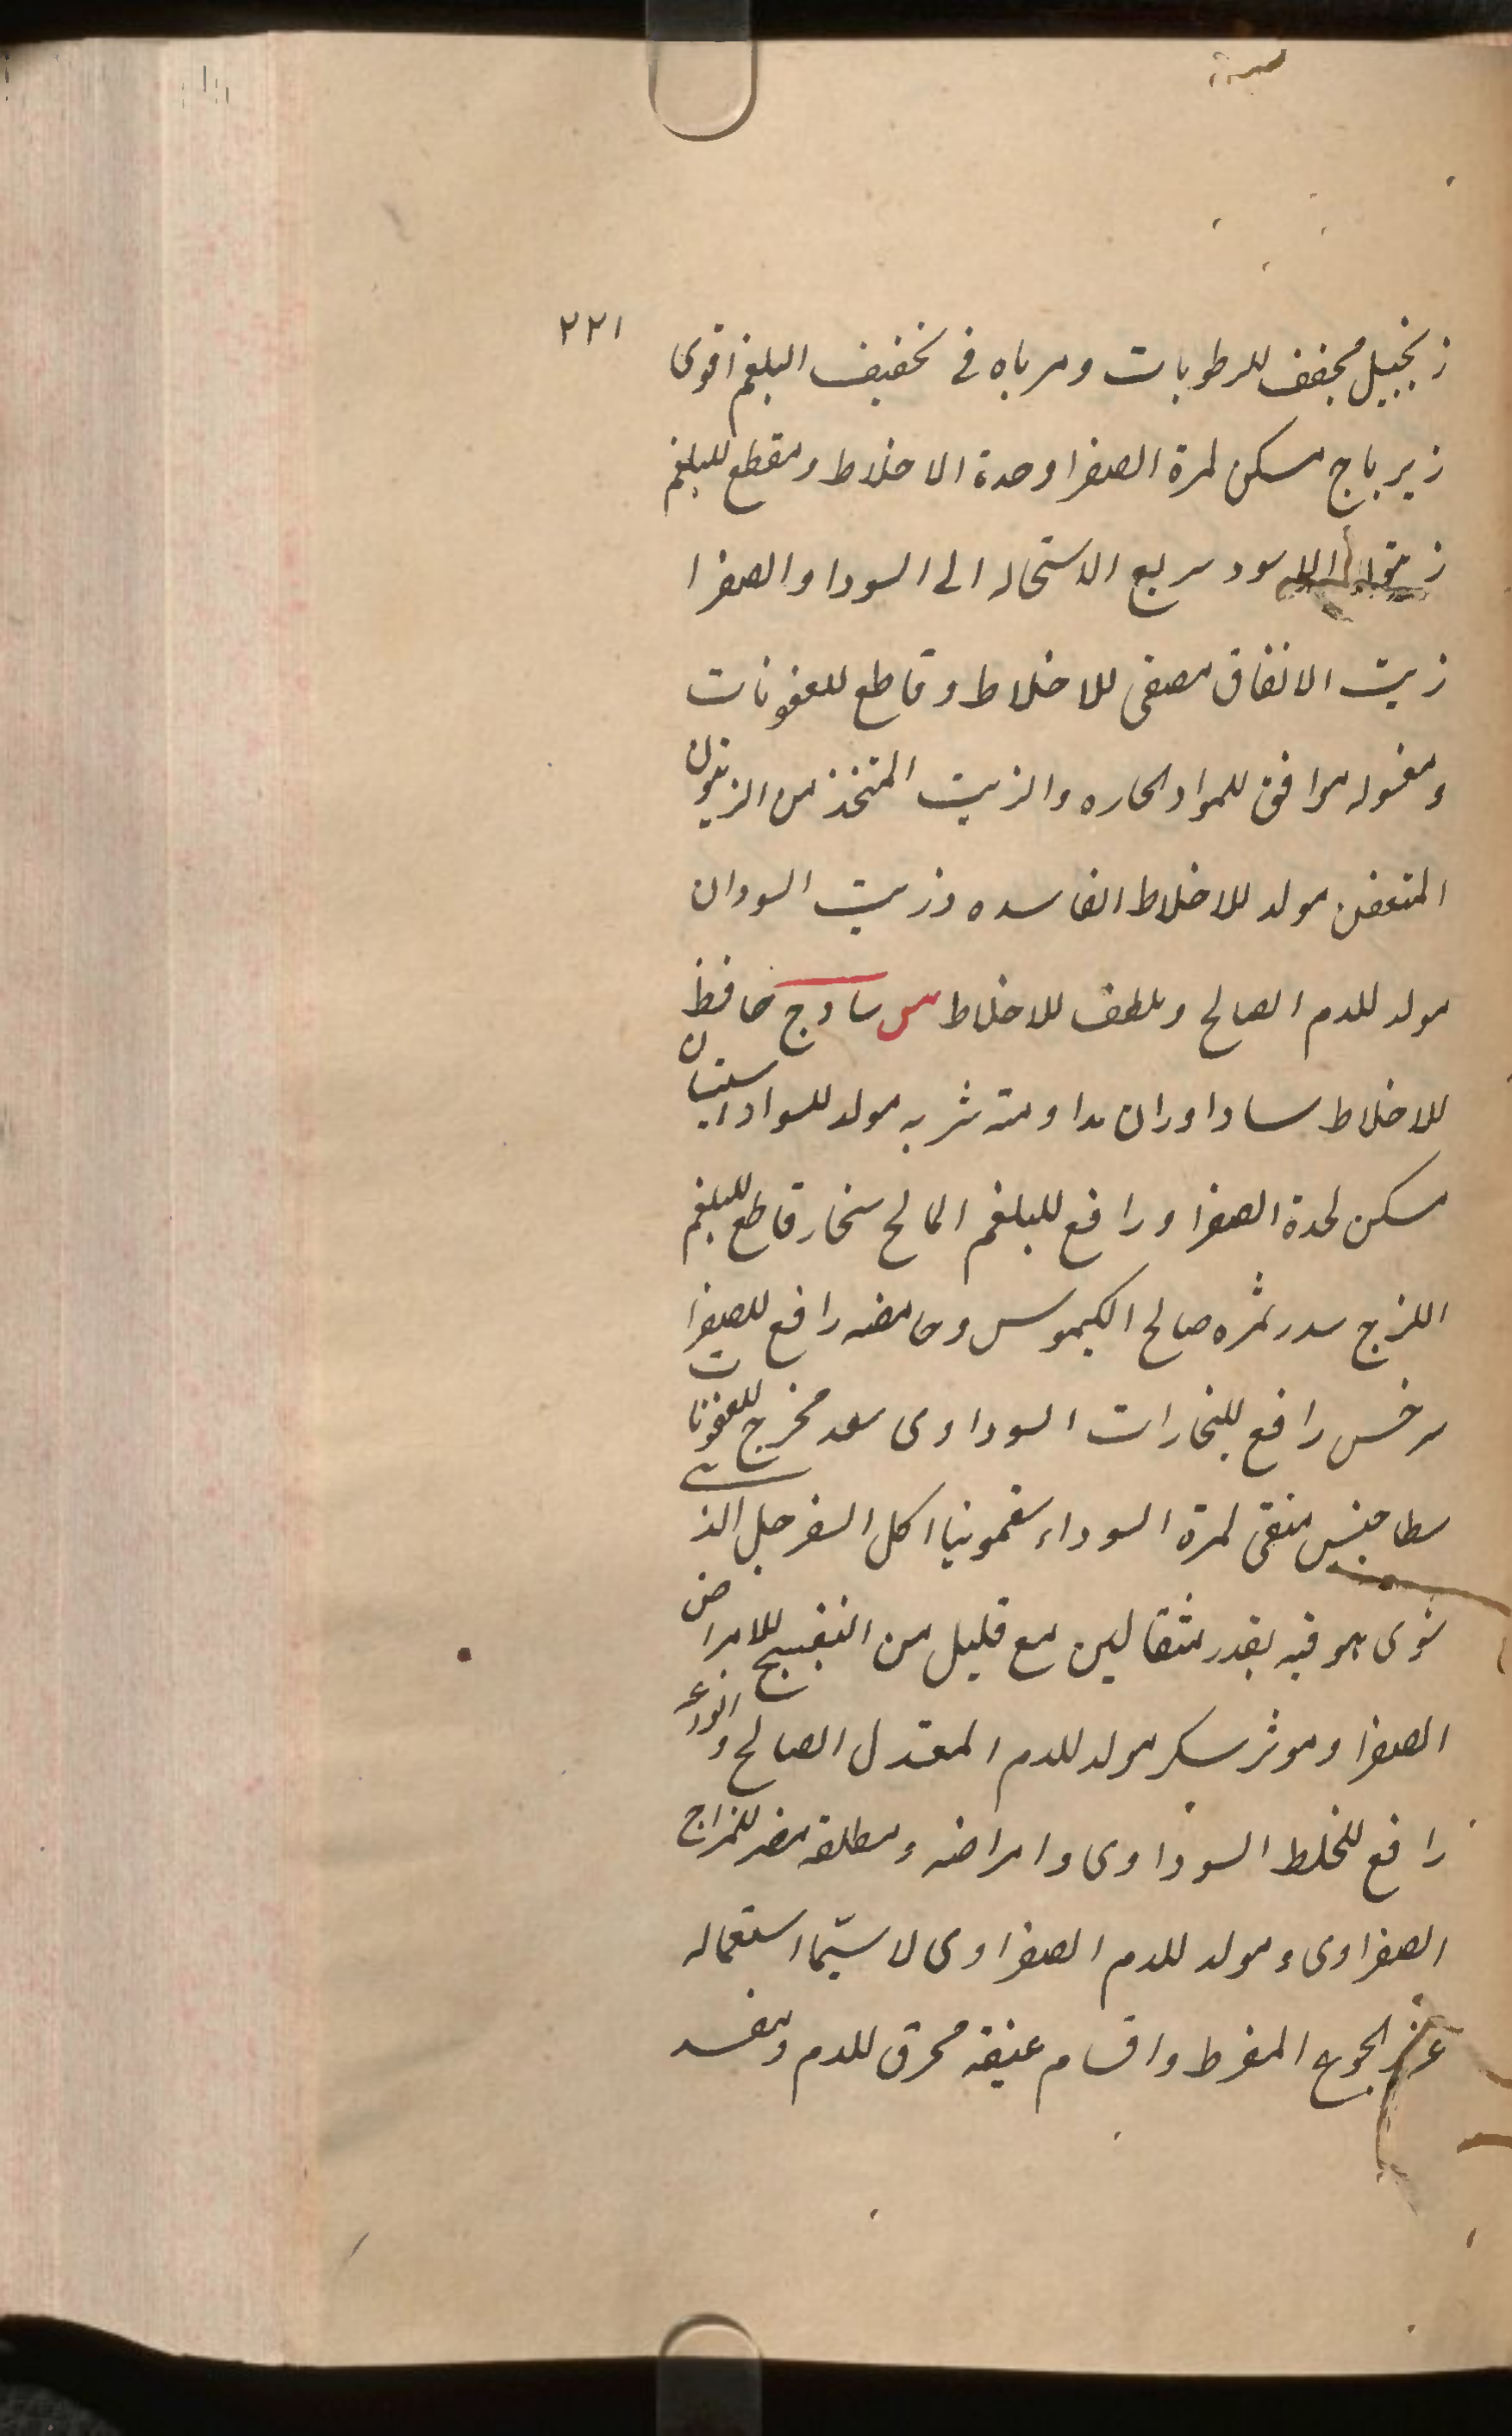 ٢٢١
زنجبيل مجفف للرطوبات ومرباه فى تخفيف البلغم اقوى
زيرباج مسكن لمرة الصفرا وحدة الاخلاط ومقطع للبلغم
سود سريع الاستحاله الى السودا والصفرا
زيت الانفاق مصفى للاخلاط وقاطع للعفونات
ومغسوله موافق للمواد الحاره والزيت المتخذ من الزيتون
المتعفن مولد للاخلاط الفاسده وزيت السودان
مولد للدم الصالح وملطف للاخلاط س سادج حافظ
للاخلاط ساداوران مداومته شربه مولد للسوداء سپستان
مسكن لحدة الصفرا ورافع للبلغم المالح سنجار قاطع للبلغم
اللزج سدر ثمره صالح الكيموس وحامضه رافع للصفرا
سرخس رافع للبخارات السوداوى سعد مخرج للعفونات
سطاخيس منقى لمرة السوداء سقمونيا اكل السفرجل الذى
شوى هو فيه بقدر مثقالين مع قليل من البنفسج للامراض
الصفرا وموثر سكر مولد للدم المعتدل الصالح وانواعه
رافع للخلط السوداوى وامراضه ومطلقه مضر للمزاج
الصفراوى ومولد للدم الصفراوى لا سيّما استعماله
عند الجوع المفرط واقسام عتيقه محرق للدم ومفسد